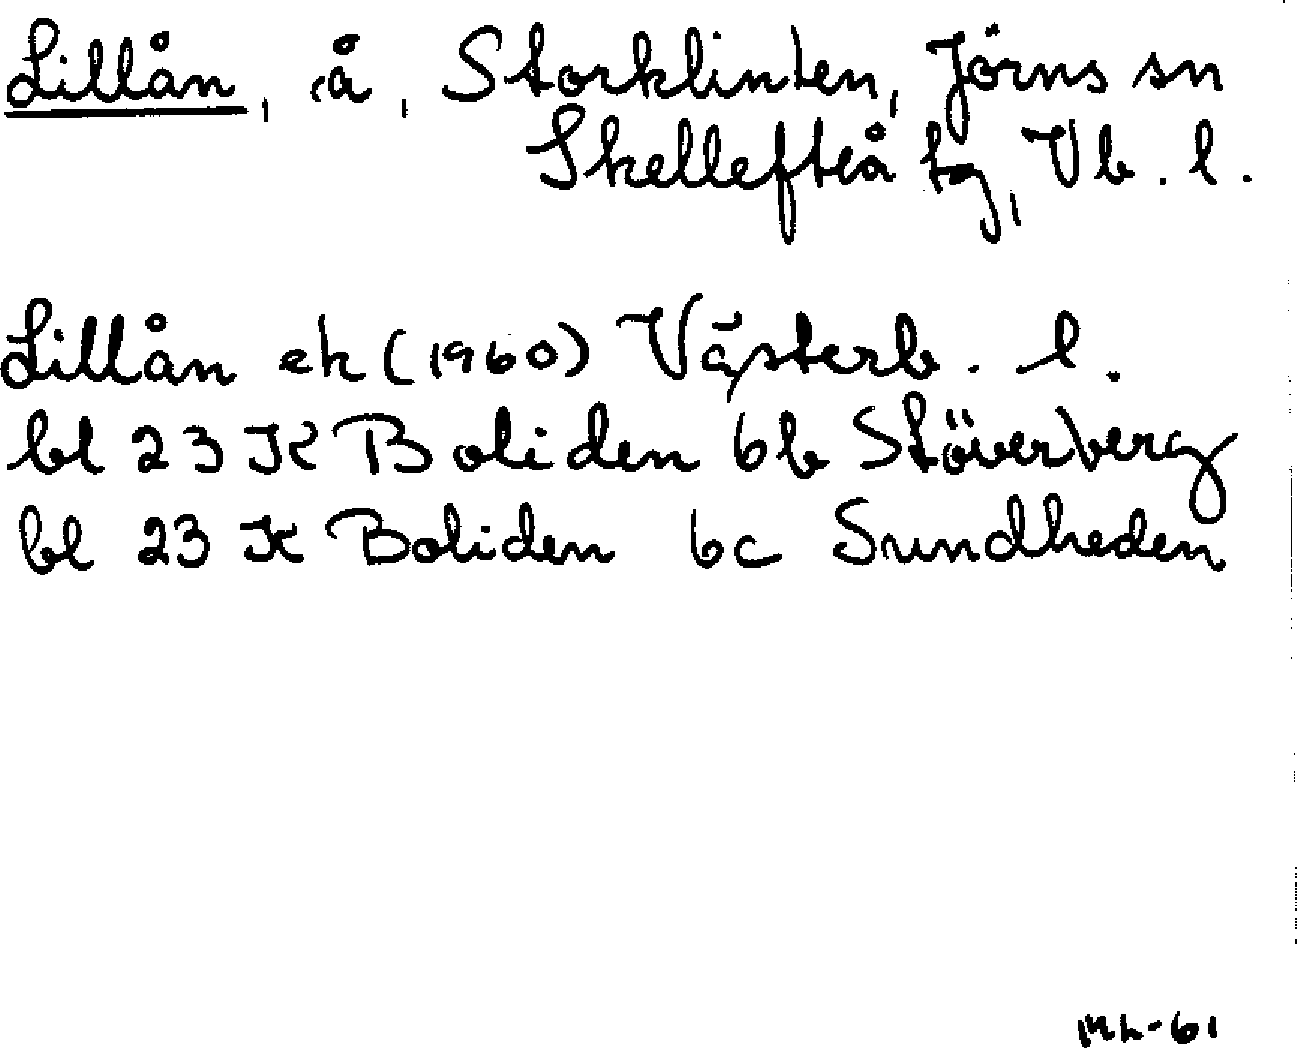 Lillån, å, Storklinten, Jörns sn
Skellefteå tg, Vb. l.
Lillån ek (1960) Västerb. l.
bl 23 K Boliden 6b Stöverberg
bl 23 K Boliden 6c Sundheden